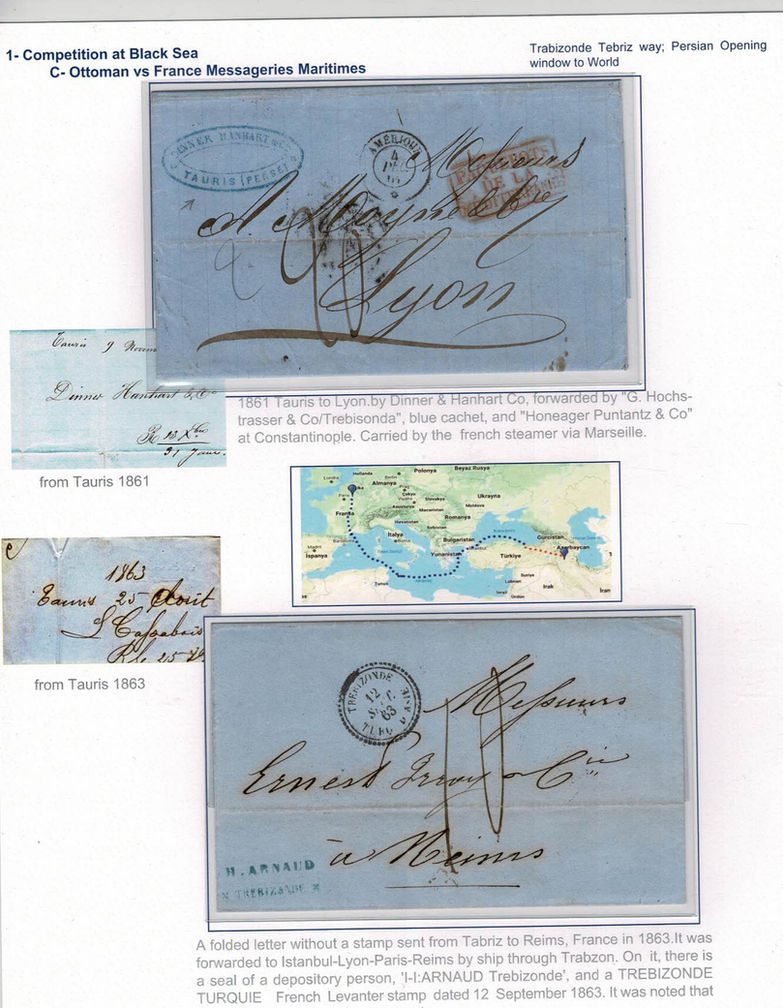 1- Competition at Black Sea
C- Ottoman vs France Messageries Maritimes
Trabizonde Tebriz way; Persian Opening
window to World
DINNER HANHART & Co
TAURIS (PERSE)
AMÉRIQUE
4
Messieurs
PAQUEBOTS
DE LA
MÉDITERRANÉE
Lyon
Tauris 9 Novem
Dinner Hanhart & Co
from Tauris 1861
1861 Tauris to Lyon.by Dinner & Hanhart Co, forwarded by "G. Hochs-
trasser & Co/Trebisonda", blue cachet, and "Honeager Puntantz & Co"
at Constantinople. Carried by the french steamer via Marseille.
Hollanda
Polonya
Beyaz Rusya
Londra
Almanya
Ukrayna
Paris
Fransa
Romanya
İtalya
Bulgaristan
Gürcistan
Azerbaycan
Madrid
İspanya
Yunanistan
Türkiye
Suriye
Lübnan
Irak
İran
Tunus
1863
Tauris 25 Août
from Tauris 1863
TREBIZONDE
12
63
TURQ. D'ASIE
Messieurs
Ernest Irroy & Cie
à Reims
H. ARNAUD
TREBIZONDE
A folded letter without a stamp sent from Tabriz to Reims, France in 1863.It was
forwarded to Istanbul-Lyon-Paris-Reims by ship through Trabzon. On it, there is
a seal of a depository person, 'I-I:ARNAUD Trebizonde', and a TREBIZONDE
TURQUIE French Levanter stamp dated 12 September 1863. It was noted that